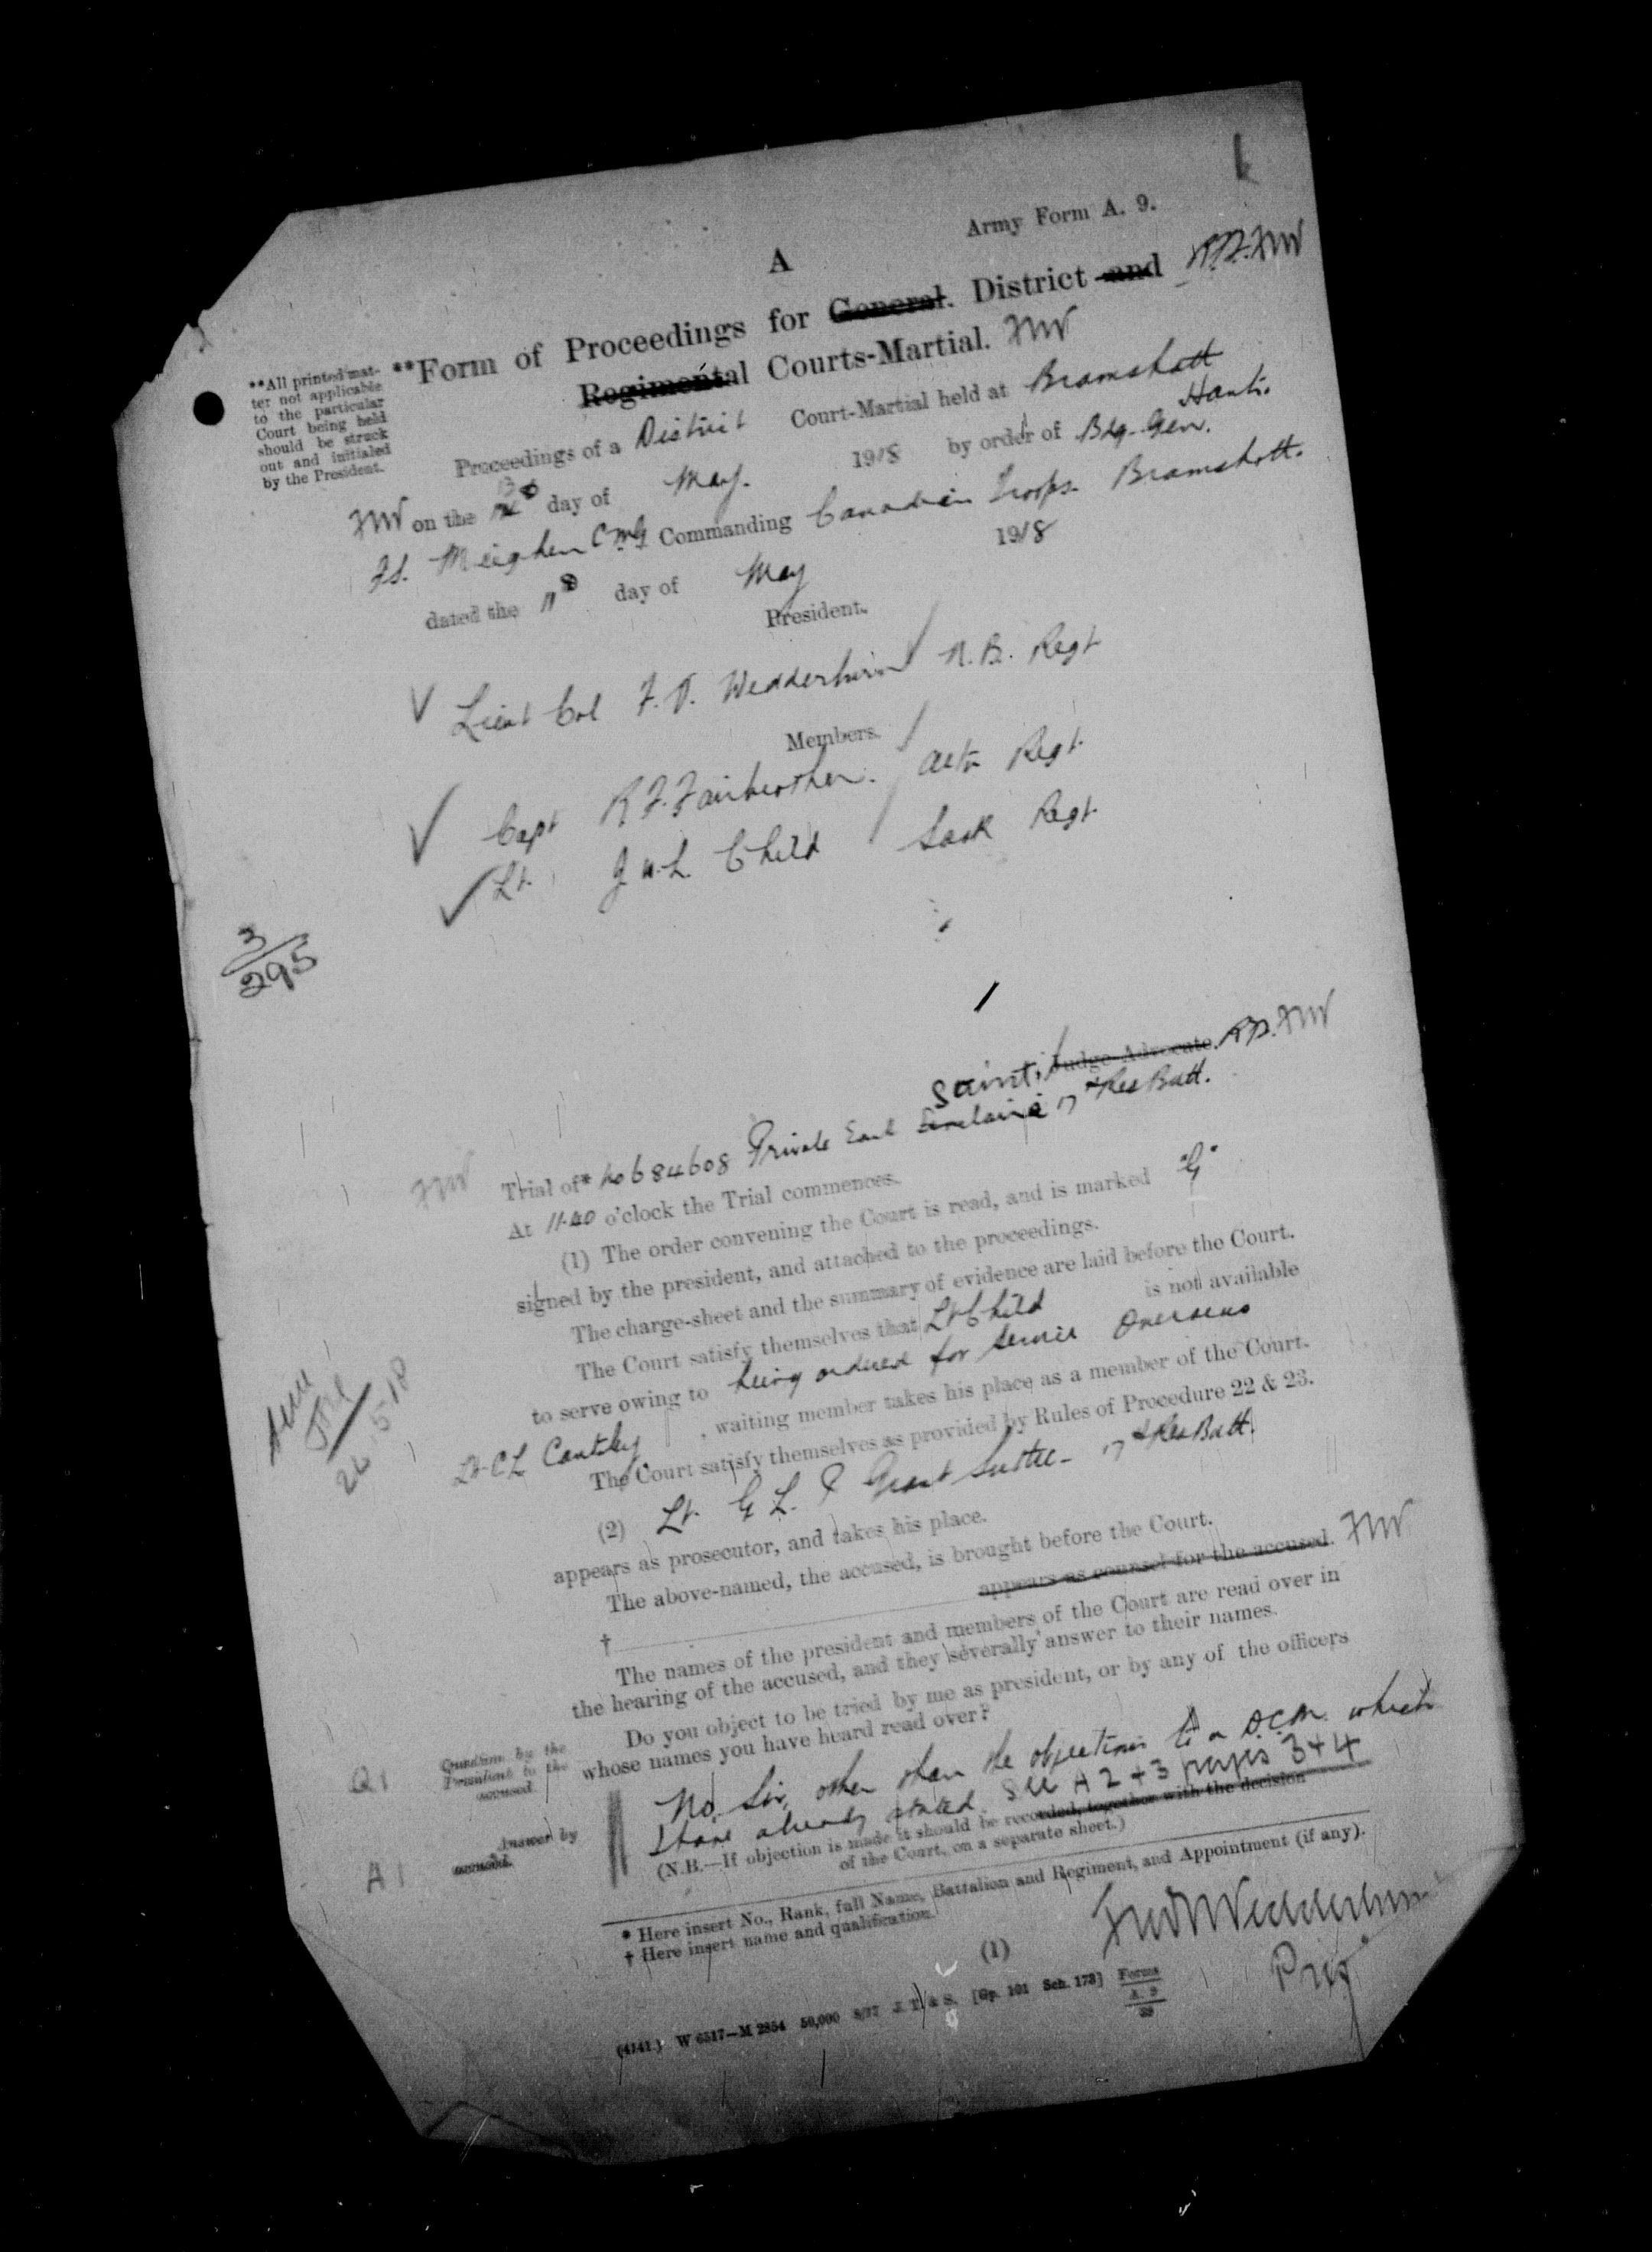 Army Form A. 9.
A
**Form of Proceedings for General. District and
Regimental Courts-Martial. FVW
**All printed mat-
ter not applicable
to the particular
Court being held
should be struck
out and initialed
by the President.
Proceedings of a District Court-Martial held at Bramshott
Hants.
FVW on the 13th day of May. 1918 by order of Brg-Gen.
F.S. Meighen CMG Commanding Canadian Troops Bramshott.
dated the 11th day of May 1918
President.
Lieut Col F. V. Wedderburn N.B. Regt
Members.
Capt R F. Fairbrother. Regt.
Lt. J W.L. Child Sask Regt.
3/295
Judge-Advocate. FVW
Saint.
FVW Trial of* No 684608 Private Earl Sinclair 17th Res Batt.
At 11.40 o'clock the Trial commences.
(1) The order convening the Court is read, and is marked "G"
signed by the president, and attached to the proceedings.
The charge-sheet and the summary of evidence are laid before the Court.
The Court satisfy themselves that Lt Child is not available
to serve owing to being ordered for service Overseas
Lt. C L , waiting member takes his place as a member of the Court.
The Court satisfy themselves as provided by Rules of Procedure 22 & 23.
26.5.18
(2) Lt. G L. P Grant Suttie - 17th Res Batt.
appears as prosecutor, and takes his place.
The above-named, the accused, is brought before the Court.
† appears as counsel for the accused. FVW
The names of the president and members of the Court are read over in
the hearing of the accused, and they severally answer to their names.
Q1 Question by the
President to the
accused.
Do you object to be tried by me as president, or by any of the officers
whose names you have heard read over?
A1 Answer by
accused.
No, Sir, other than the objections to a D.C.M. which
I have already stated. See A 2 + 3 pages 3+4
(N.B.—If objection is made it should be recorded, together with the decision
of the Court, on a separate sheet.)
* Here insert No., Rank, full Name, Battalion and Regiment, and Appointment (if any).
† Here insert name and qualification.
(1)
Fred V Wedderburn
Pres
(4141.) W 6517—M 2854 50,000 8/17 J. T. & S. [Gp. 101 Sch. 173] Forms
A. 9